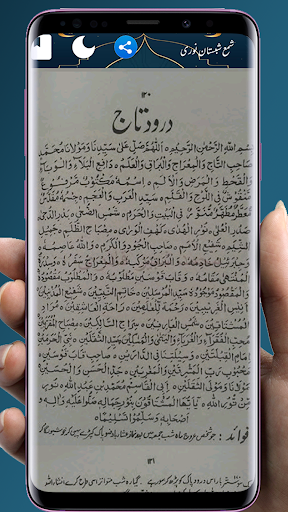 شمع شبستان نوری
۱۲۰
درود تاج
بِسْمِ اللهِ الرَّحْمٰنِ الرَّحِيْمِ ہ اَللّٰهُمَّ صَلِّ عَلٰى سَيِّدِنَا وَمَوْلَانَا مُحَمَّدٍ
صَاحِبِ التَّاجِ وَالْمِعْرَاجِ وَالْبُرَاقِ وَالْعَلَمِ ہ دَافِعِ الْبَلَاۤءِ وَالْوَبَاۤءِ
وَالْقَحْطِ وَالْمَرَضِ وَالْاَلَمِ ہ اِسْمُهٗ مَكْتُوْبٌ مَّرْفُوْعٌ
مَّنْقُوْشٌ فِى اللَّوْحِ وَالْقَلَمِ ہ سَيِّدِ الْعَرَبِ وَالْعَجَمِ ہ جِسْمُهٗ مُقَدَّسٌ
مُّعَطَّرٌ مُّطَهَّرٌ مُّنَوَّرٌ فِى الْبَيْتِ وَالْحَرَمِ ہ شَمْسِ الضُّحٰى بَدْرِ الدُّجٰى
صَدْرِ الْعُلٰى نُوْرِ الْهُدٰى كَهْفِ الْوَرٰى مِصْبَاحِ الظُّلَمِ ہ جَمِيْلِ
الشِّيَمِ شَفِيْعِ الْاُمَمِ ہ صَاحِبِ الْجُوْدِ وَالْكَرَمِ ہ وَاللهُ عَاصِمُهٗ ہ
وَجِبْرِيْلُ خَادِمُهٗ ہ وَالْبُرَاقُ مَرْكَبُهٗ ہ وَالْمِعْرَاجُ سَفَرُهٗ وَسِدْرَةُ
الْمُنْتَهٰى مَقَامُهٗ ہ وَقَابَ قَوْسَيْنِ مَطْلُوْبُهٗ ہ وَالْمَطْلُوْبُ مَقْصُوْدُهٗ
وَالْمَقْصُوْدُ مَوْجُوْدُهٗ ہ سَيِّدِ الْمُرْسَلِيْنَ ہ خَاتَمِ النَّبِيِّيْنَ ہ شَفِيْعِ
الْمُذْنِبِيْنَ ہ اَنِيْسِ الْغَرِيْبِيْنَ رَحْمَةٍ لِّلْعٰلَمِيْنَ ہ رَاحَةِ الْعَاشِقِيْنَ مُرَادِ
الْمُشْتَاقِيْنَ ہ شَمْسِ الْعَارِفِيْنَ ہ سِرَاجِ السَّالِكِيْنَ ہ مِصْبَاحِ الْمُقَرَّبِيْنَ ہ
مُحِبِّ الْفُقَرَاۤءِ وَالْغُرَبَاۤءِ وَالْمَسَاكِيْنَ ہ سَيِّدِ الثَّقَلَيْنِ ہ نَبِيِّ الْحَرَمَيْنِ ہ
اِمَامِ الْقِبْلَتَيْنِ ہ وَسِيْلَتِنَا فِى الدَّارَيْنِ ہ صَاحِبِ قَابَ قَوْسَيْنِ ہ
مَحْبُوْبِ رَبِّ الْمَشْرِقَيْنِ وَالْمَغْرِبَيْنِ ہ جَدِّ الْحَسَنِ وَالْحُسَيْنِ
مَوْلَانَا وَمَوْلَى الثَّقَلَيْنِ ہ اَبِى الْقَاسِمِ مُحَمَّدِ بْنِ عَبْدِ اللهِ نُوْرٍ
مِّنْ نُّوْرِ اللهِ ہ يٰۤاَيُّهَا الْمُشْتَاقُوْنَ بِنُوْرِ جَمَالِهٖ صَلُّوْا عَلَيْهِ وَاٰلِهٖ وَ
اَصْحَابِهٖ وَسَلِّمُوْا تَسْلِيْمًا ہ
فوائد : جو شخص عروج ماہ شب جمعہ میں بعد نماز عشاء باوضو پاک کپڑے پہن کر خوشبو لگا کر
۱۲۱